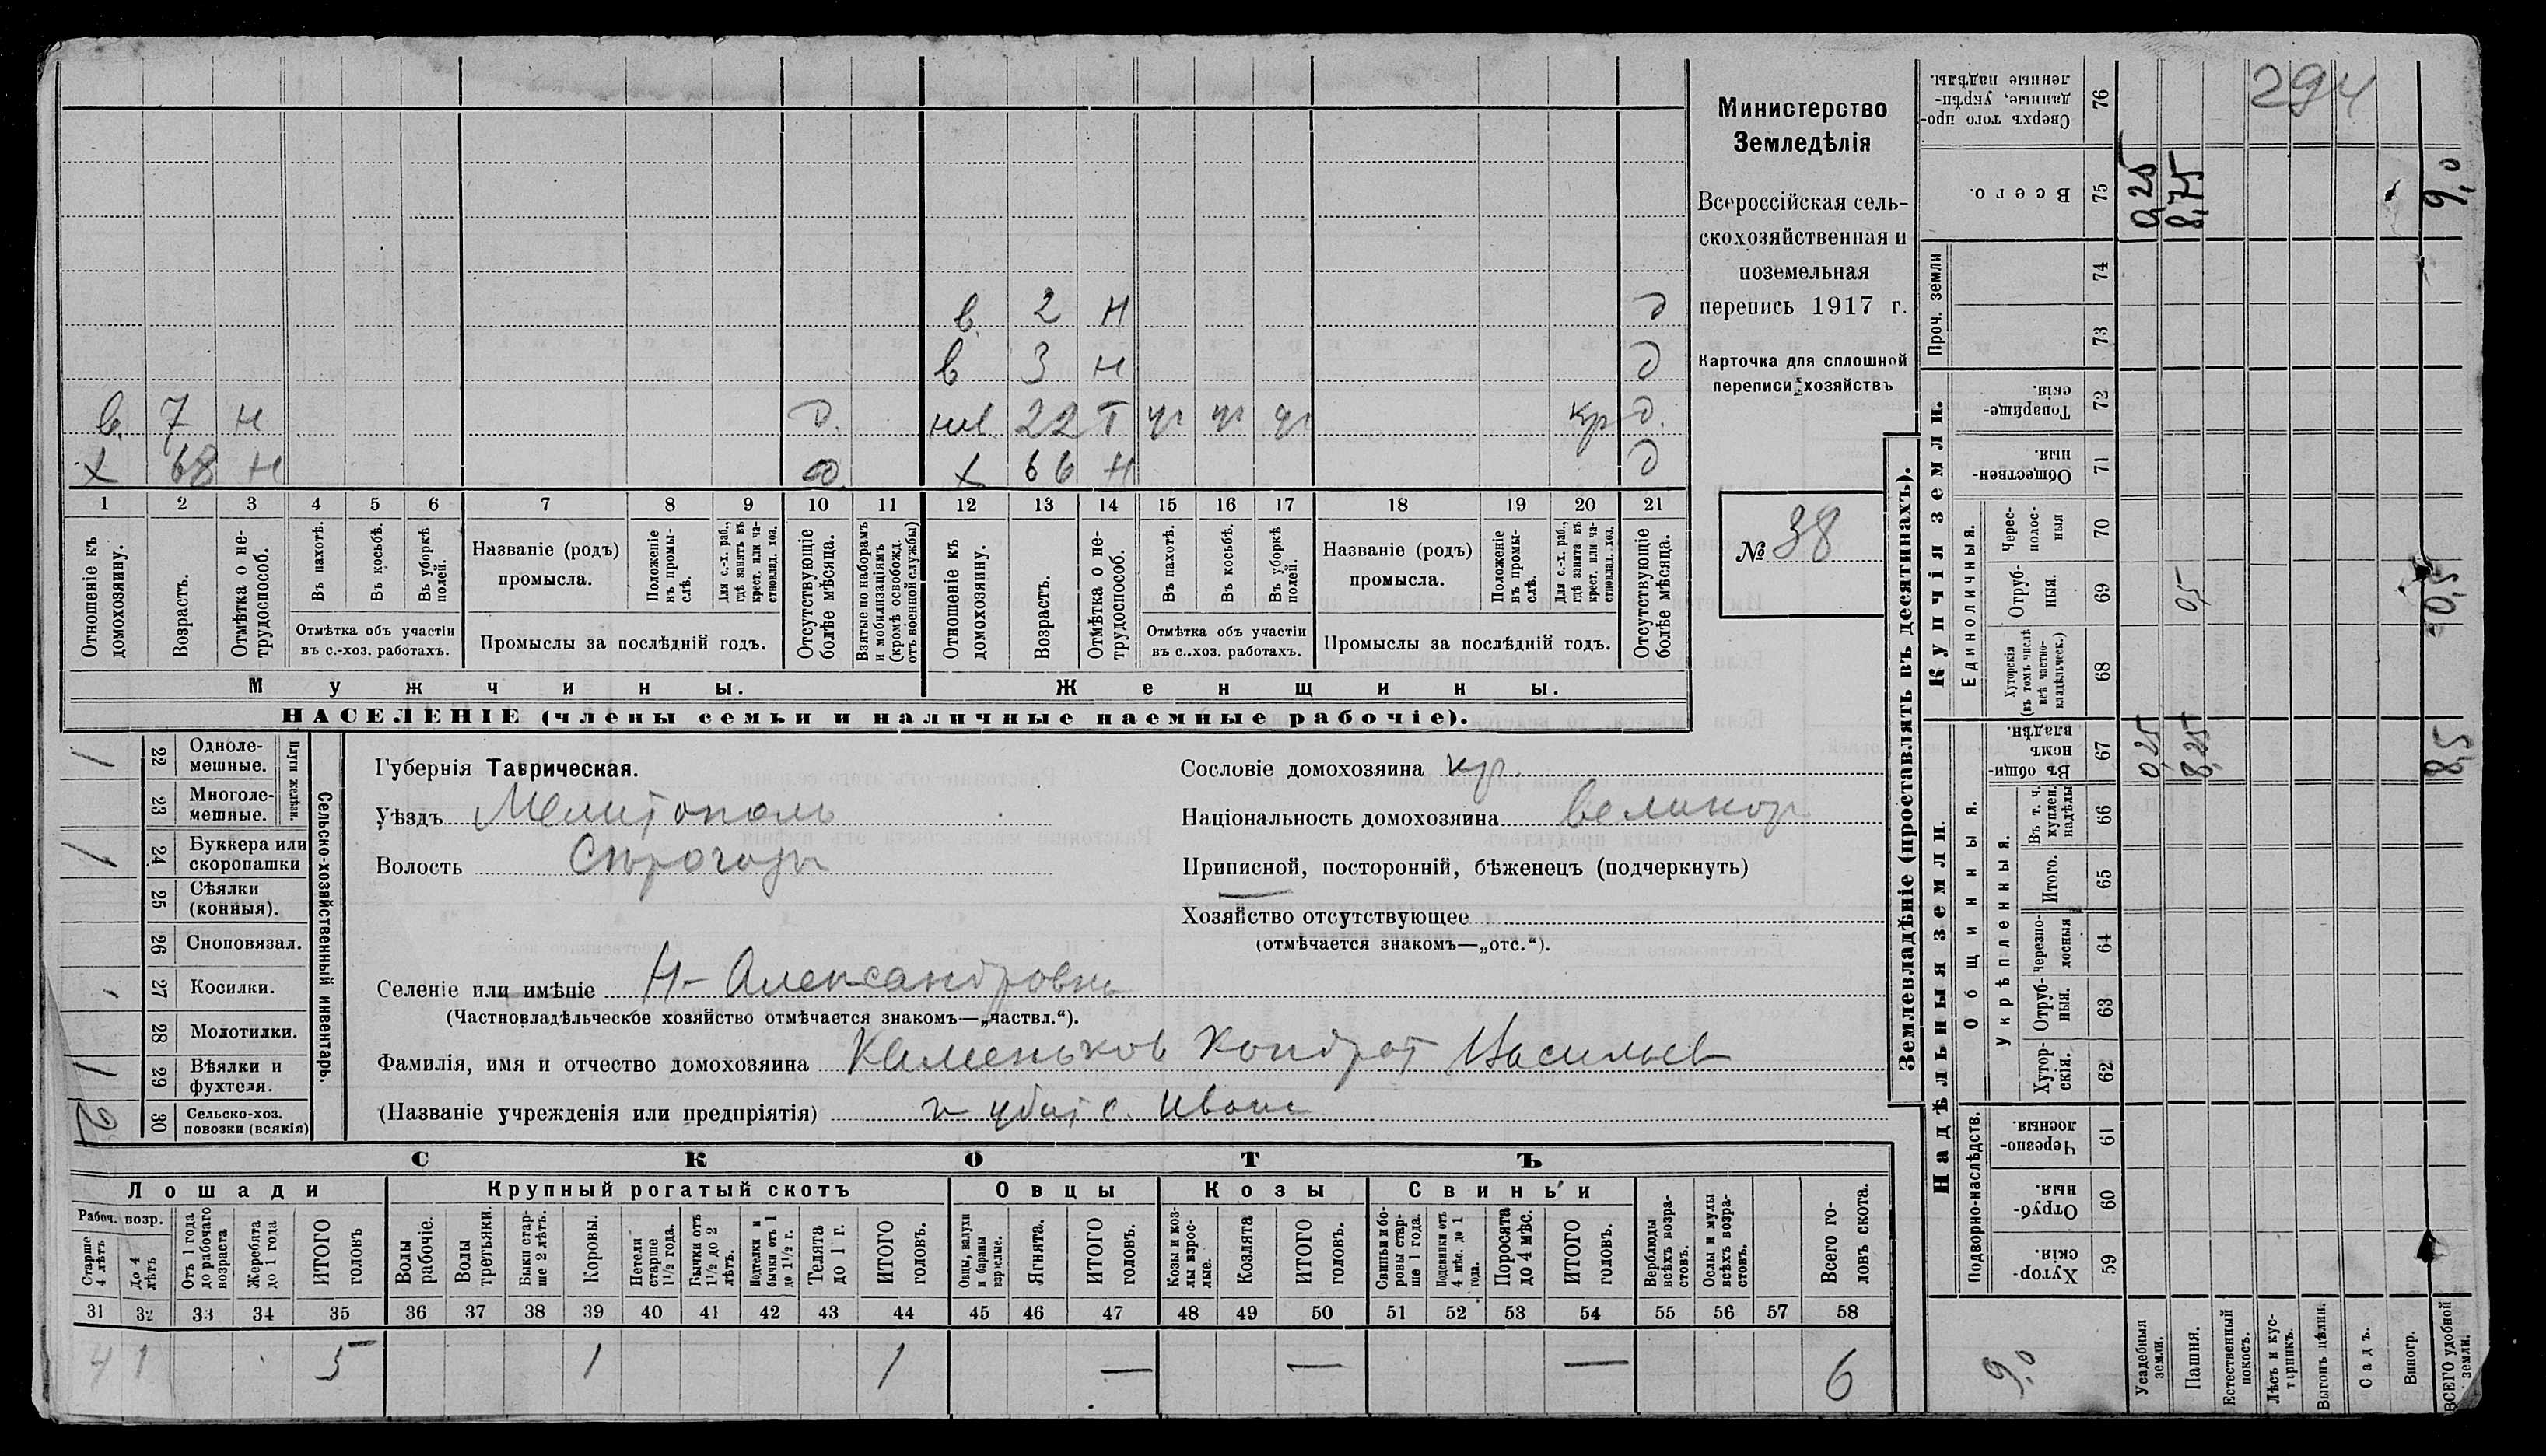 294
Министерство
Земледѣлія
Всероссійская сель-
скохозяйственная и
поземельная
перепись 1917 г.
Карточка для сплошной
переписи хозяйствъ
№ 38
в. 2 н д
в 3 н д
в. 7 н д. 22 Т кр д.
х 68 н д х 66 н д
1 2 3 4 5 6 7 8 9 10 11 12 13 14 15 16 17 18 19 20 21
Отношеніе къ домохозяину.
Возрастъ.
Отмѣтка о не-трудоспособ.
Въ пахотѣ.
Въ косьбѣ.
Въ уборкѣ полей.
Отмѣтка объ участіи
въ с.-хоз. работахъ.
Названіе (родъ)
промысла.
Положеніе въ промы-слѣ.
Для с.-х. раб., гдѣ занятъ въ крест. или ча-стновлад. хоз.
Промыслы за послѣдній годъ.
Отсутствующіе болѣе мѣсяца.
Взятые по наборамъ и мобилизаціямъ (кромѣ освобожд. отъ военной службы)
Отношеніе къ домохозяину.
Возрастъ.
Отмѣтка о не-трудоспособ.
Въ пахотѣ.
Въ косьбѣ.
Въ уборкѣ полей.
Отмѣтка объ участіи
въ с..хоз. работахъ.
Названіе (родъ)
промысла.
Положеніе въ промы-слѣ.
Для с.-х. раб., гдѣ занята въ крест. или ча-стновлад. хоз.
Промыслы за послѣдній годъ.
Отсутствующіе болѣе мѣсяца.
Мужчины.
Женщины.
НАСЕЛЕНІЕ (члены семьи и наличные наемные рабочіе).
Сельско-хозяйственный инвентарь.
Плуги желѣзн.
1 22 Одноле-мешные.
23 Многоле-мешные.
1 24 Буккера или скоропашки
25 Сѣялки (конныя).
26 Сноповязал.
27 Косилки.
28 Молотилки.
1 29 Вѣялки и фухтеля.
2 30 Сельско-хоз. повозки (всякія)
Губернія Таврическая.
Уѣздъ Мелитополь
Волость Сѣрогозы
Сословіе домохозяина кр.
Національность домохозяина великор
Приписной, посторонній, бѣженецъ (подчеркнуть)
Хозяйство отсутствующее
(отмѣчается знакомъ—„отс.“).
Селеніе или имѣніе Н-Александровка
(Частновладѣльческое хозяйство отмѣчается знакомъ—„частвл.“).
Фамилія, имя и отчество домохозяина Каменьков Кондрат Васильев
(Названіе учрежденія или предпріятія)
СКОТЪ
Лошади
Крупный рогатый скотъ
Овцы
Козы
Свиньи
Рабоч. возр.
Старше 4 лѣтъ
До 4 лѣтъ
Отъ 1 года до рабочаго возраста
Жеребята до 1 года
ИТОГО головъ
Волы рабочіе.
Волы третьяки.
Быки стар-ше 2 лѣтъ.
Коровы.
Нетели старше 1½ года.
Бычки отъ 1½ до 2 лѣтъ.
Подтелки и бычки отъ 1 до 1½ г.
Телята до 1 г.
ИТОГО головъ.
Овцы, валухи и бараны взрослые.
Ягнята.
ИТОГО головъ.
Козы и коз-лы взрос-лые.
Козлята
ИТОГО головъ.
Свиньи и бо-ровы стар-ше 1 года.
Подсвинки отъ 4 мѣс. до 1 года.
Поросята до 4 мѣс.
ИТОГО головъ.
Верблюды всѣхъ возра-стовъ.
Ослы и мулы всѣхъ возра-стовъ.
Всего го-ловъ скота.
31 32 33 34 35 36 37 38 39 40 41 42 43 44 45 46 47 48 49 50 51 52 53 54 55 56 57 58
4 1 5 1 1 — — — 6
Землевладѣніе (проставлять въ десятинахъ).
Надѣльныя земли.
Подворно-наслѣдств.
Хутор-скія. 59
Отруб-ныя. 60
Черезпо-лосныя. 61
Общинныя.
Укрѣпленныя.
Хутор-скія. 62
Отруб-ныя. 63
Черезпо-лосныя 64
Итого. 65
Въ т. ч. куплен. надѣлы 66
Въ общи-номъ владѣн. 67
Купчія земли.
Единоличныя.
Хуторскія (въ томъ числѣ всѣ частно-владѣльческ.) 68
Отруб-ныя. 69
Черес-полос-ныя 70
Обществен-ныя. 71
Товарище-скія. 72
Проч. земли
73 74
Всего. 75
Сверхъ того про-данные, укрѣп-ленные надѣлы. 76
9,0
Усадебныя земли. 0,25 0,25
Пашня. 8,25 0,5 8,75
Естественный покосъ.
Лѣсъ и кус-тарникъ.
Выгонъ цѣлин.
Садъ.
Виногр.
ВСЕГО удобной земли. 8,5 0,5 9,0